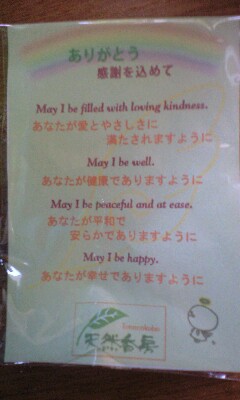 ありがとう
感謝を込めて
May I be filled with loving kindness.
あなたが愛とやさしさに
満たされますように
May I be well.
あなたが健康でありますように
May I be peaceful and at ease.
あなたが平和で
安らかでありますように
May I be happy.
あなたが幸せでありますように
天然香房